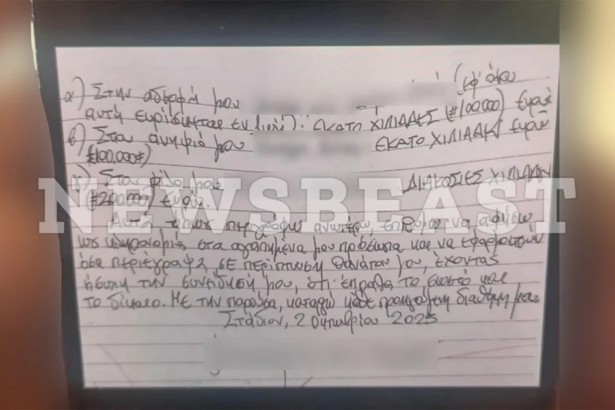 α) Στην αδερφή μου (εφ' όσον
αυτή ευρίσκεται εν ζωή): ΕΚΑΤΟ ΧΙΛΙΑΔΕΣ (#100000) Ευρώ
β) Στον ανηψιό μου ΕΚΑΤΟ ΧΙΛΙΑΔΕΣ Ευρώ
(#100.000#)
γ) Στον φίλο μου ΔΙΑΚΟΣΙΕΣ ΧΙΛΙΑΔΕΣ
(#200000) Ευρώ.
NEWSBEAST
Αυτά, όπως περιγράφω ανωτέρω, επιθυμώ να αφήσω
ως κληρονομιά στα αγαπημένα μου πρόσωπα και να εφαρμοστούν
όσα περιέγραψα, σε περίπτωση θανάτου μου, έχοντας
ήσυχη την συνείδησή μου, ότι έπραξα το σωστό και
το δίκαιο. Με την παρούσα, καταργώ κάθε προηγούμενη διαθήκη μου.
2 Οκτωβρίου 2025